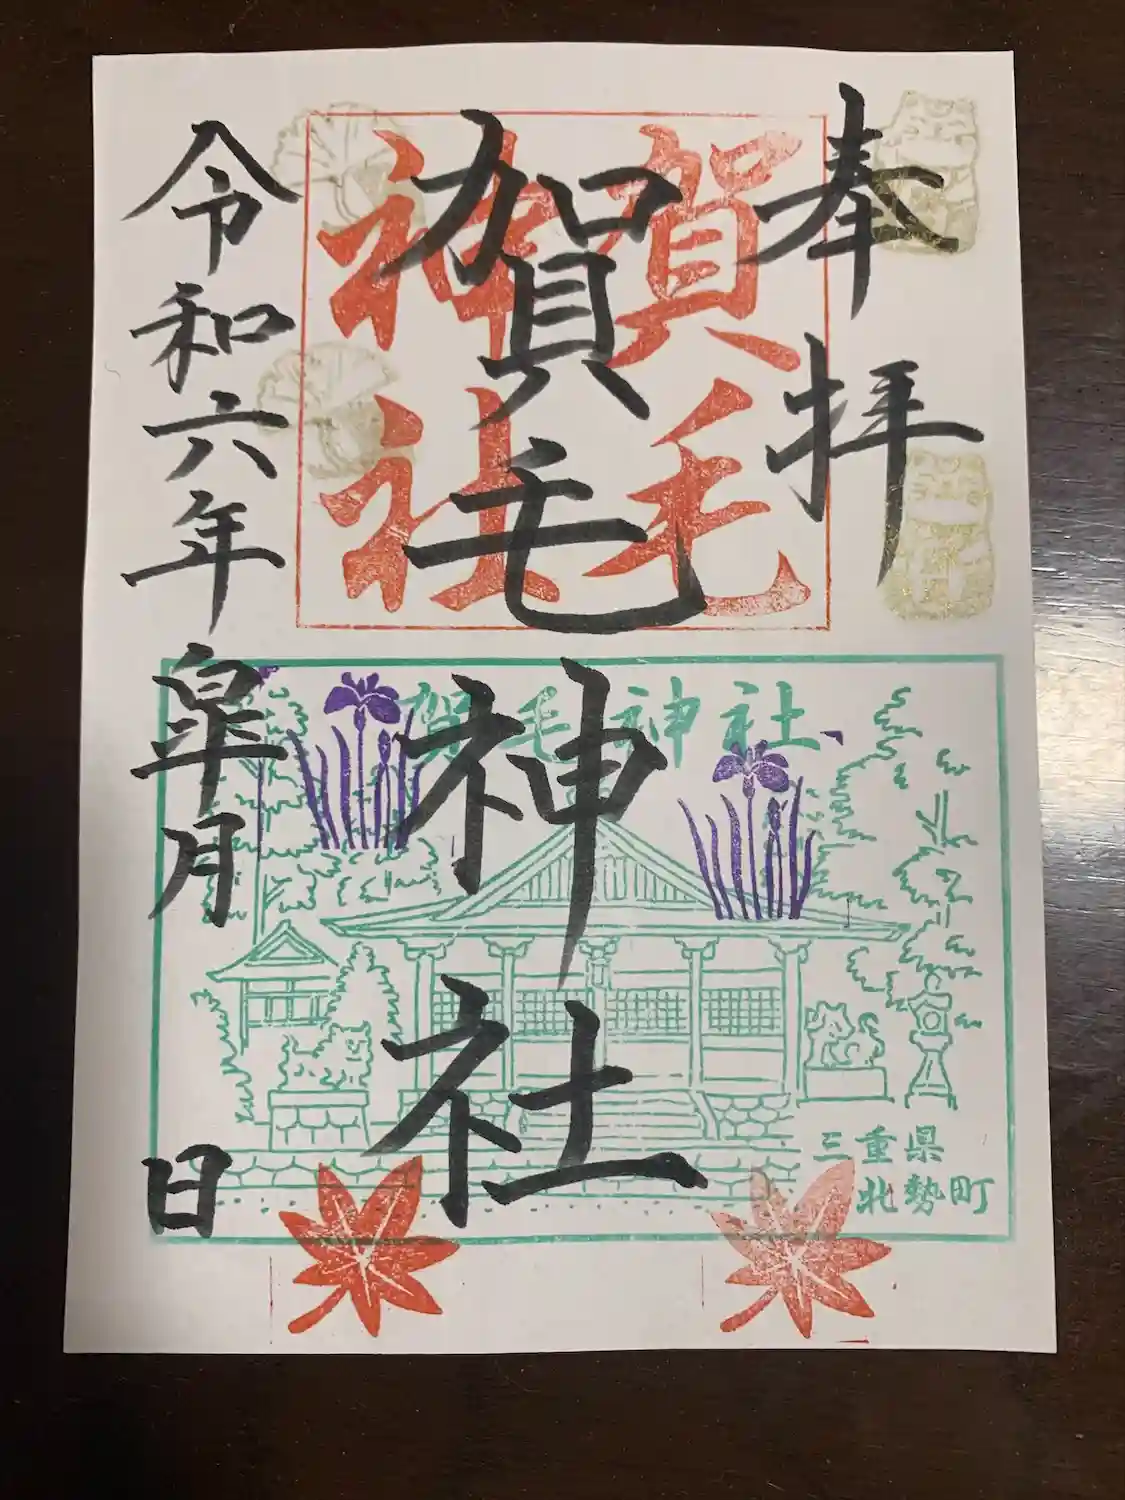 奉拝
賀毛
神社
賀毛神社
令和六年皐月 日
賀毛神社
三重県
北勢町